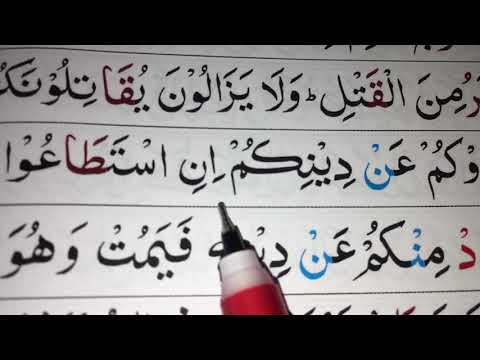 رُ مِنَ الْقَتْلِ ؕ وَلَا يَزَالُوْنَ يُقَاتِلُوْنَكُ
وْكُمْ عَنْ دِيْنِكُمْ اِنِ اسْتَطَاعُوْا
دْ مِنْكُمْ عَنْ فَيَمُتْ وَهُوَ